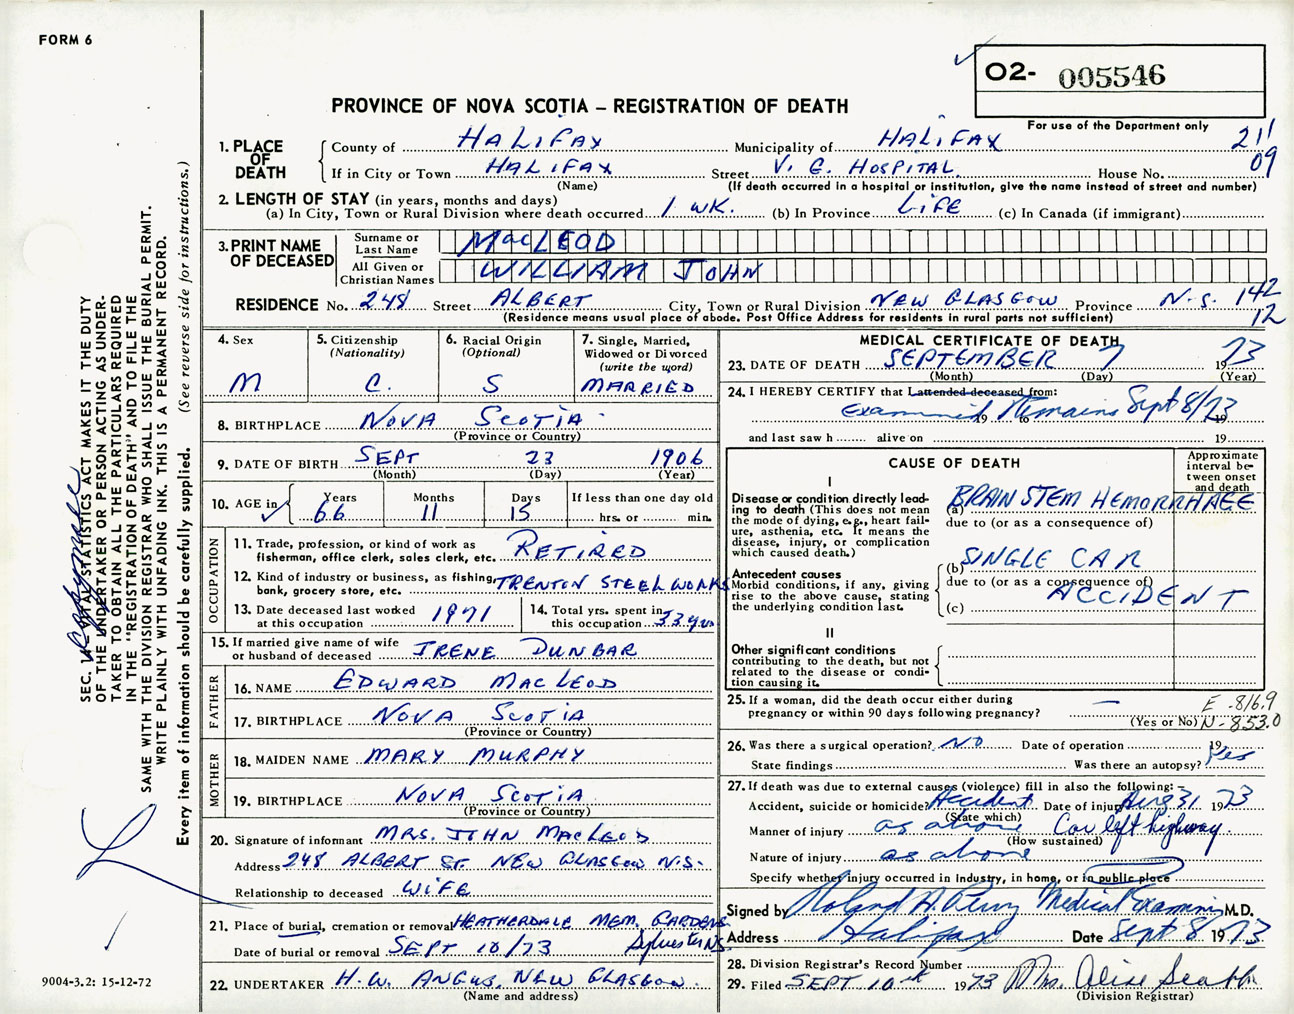 FORM 6
O2- 005546
PROVINCE OF NOVA SCOTIA – REGISTRATION OF DEATH
For use of the Department only
1. PLACE OF DEATH
County of HALIFAX Municipality of HALIFAX 211
If in City or Town HALIFAX Street V. G. HOSPITAL House No. 09
(Name) (If death occurred in a hospital or institution, give the name instead of street and number)
2. LENGTH OF STAY (in years, months and days)
(a) In City, Town or Rural Division where death occurred 1 WK. (b) In Province LIFE (c) In Canada (if immigrant)
3. PRINT NAME OF DECEASED
Surname or Last Name MacLEOD
All Given or Christian Names WILLIAM JOHN
RESIDENCE No. 248 Street ALBERT City, Town or Rural Division NEW GLASGOW Province N.S. 142
(Residence means usual place of abode. Post Office Address for residents in rural parts not sufficient) 12
4. Sex M
5. Citizenship (Nationality) C.
6. Racial Origin (Optional) S
7. Single, Married, Widowed or Divorced (write the word) MARRIED
8. BIRTHPLACE NOVA SCOTIA
(Province or Country)
9. DATE OF BIRTH SEPT 23 1906
(Month) (Day) (Year)
10. AGE in Years 66 Months 11 Days 15 If less than one day old hrs. or min.
OCCUPATION
11. Trade, profession, or kind of work as fisherman, office clerk, sales clerk, etc. RETIRED
12. Kind of industry or business, as fishing, bank, grocery store, etc. TRENTON STEEL WORKS
13. Date deceased last worked at this occupation 1971
14. Total yrs. spent in this occupation 33 yrs
15. If married give name of wife or husband of deceased IRENE DUNBAR
FATHER
16. NAME EDWARD MACLEOD
17. BIRTHPLACE NOVA SCOTIA
(Province or Country)
MOTHER
18. MAIDEN NAME MARY MURPHY
19. BIRTHPLACE NOVA SCOTIA
(Province or Country)
20. Signature of informant MRS. JOHN MACLEOD
Address 248 ALBERT ST. NEW GLASGOW N.S.
Relationship to deceased WIFE
21. Place of burial, cremation or removal HEATHERDALE MEM. GARDENS
Date of burial or removal SEPT 10/73 Sylvester N.S.
22. UNDERTAKER H.W. ANGUS, NEW GLASGOW
(Name and address)
MEDICAL CERTIFICATE OF DEATH
23. DATE OF DEATH SEPTEMBER 7 1973
(Month) (Day) (Year)
24. I HEREBY CERTIFY that I attended deceased from:
Examined Remains Sept 8/73 19 to 19
and last saw h alive on 19
CAUSE OF DEATH
Approximate interval between onset and death
I
Disease or condition directly leading to death (This does not mean the mode of dying, e.g., heart failure, asthenia, etc. It means the disease, injury, or complication which caused death.)
(a) BRAIN STEM HEMORRHAGE
due to (or as a consequence of)
Antecedent causes
Morbid conditions, if any, giving rise to the above cause, stating the underlying condition last.
(b) SINGLE CAR
due to (or as a consequence of)
(c) ACCIDENT
II
Other significant conditions contributing to the death, but not related to the disease or condition causing it.
25. If a woman, did the death occur either during pregnancy or within 90 days following pregnancy? —
(Yes or No)
E-816.9
N-853.0
26. Was there a surgical operation? NO Date of operation 19
State findings Was there an autopsy? Yes
27. If death was due to external causes (violence) fill in also the following:
Accident, suicide or homicide? Accident Date of injury Aug 31 1973
(State which)
Manner of injury as above Car left highway.
(How sustained)
Nature of injury as above
Specify whether injury occurred in Industry, in home, or in public place
Signed by Roland H. Perry Medical Examiner M.D.
Address Halifax Date Sept 8 1973
28. Division Registrar's Record Number
29. Filed SEPT 10th 1973 Mrs. Alise
(Division Registrar)
SEC. STATISTICS ACT MAKES IT THE DUTY
OF THE UNDERTAKER OR PERSON ACTING AS UNDER-
TAKER TO OBTAIN ALL THE PARTICULARS REQUIRED
IN THE "REGISTRATION OF DEATH" AND TO FILE THE
SAME WITH THE DIVISION REGISTRAR WHO SHALL ISSUE THE BURIAL PERMIT.
WRITE PLAINLY WITH UNFADING INK. THIS IS A PERMANENT RECORD.
Every item of information should be carefully supplied. (See reverse side for instructions.)
9004-3.2: 15-12-72